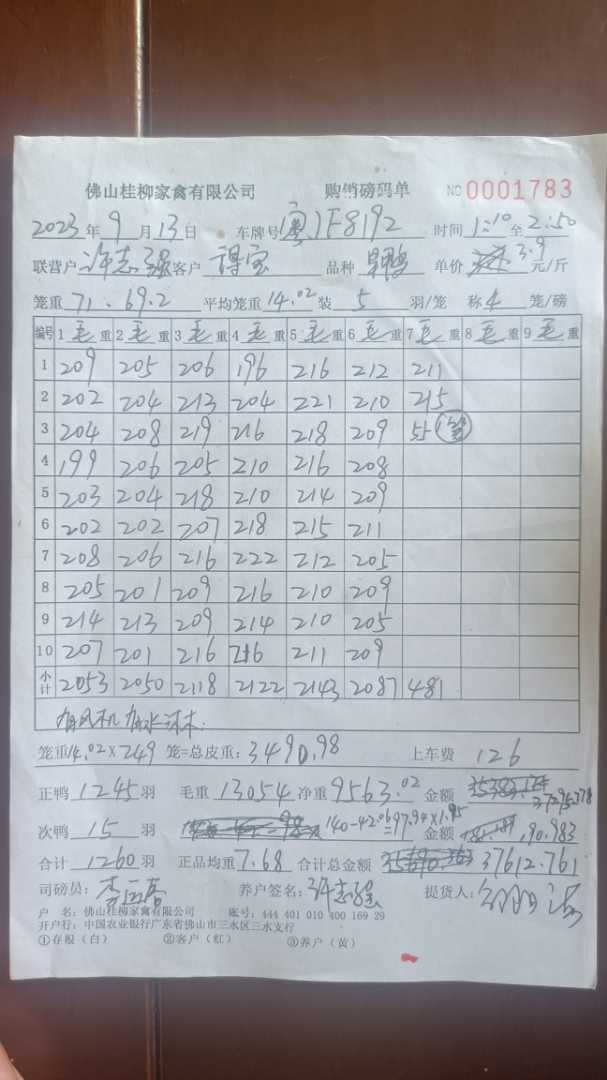 佛山桂柳家禽有限公司 购销磅码单 NO 0001783
2023年9月13日 车牌号(粤)F8192 时间1:10至2:50
联营户 许志强 客户 得宝 品种 单价 3.9元/斤
笼重 71.69.2 平均笼重14.02装 5 羽/笼 称4笼/磅
编号 1毛重 2毛重 3毛重 4毛重 5毛重 6毛重 7毛重 8毛重 9毛重
1 209 205 206 196 216 212 211
2 202 204 213 204 221 210 215
3 204 208 219 216 218 209 55
4 199 206 205 210 216 208
5 203 204 218 210 214 209
6 202 202 207 218 215 211
7 208 206 216 222 212 205
8 205 201 209 216 210 209
9 214 213 209 214 210 205
10 207 201 216 216 211 209
小计 2053 2050 2118 2122 2143 2087 481
有风机 有水
笼重14.02×249 笼=总皮重:3490.98 上车费 126
正鸭 1245羽 毛重 13054 净重9563.02 金额 37295.778
次鸭 15 羽 140-42.06=97.94×1.95 金额 190.983
合计 1260羽 正品均重 7.68 合计总金额 37612.761
司磅员: 养户签名:许志强 提货人:
户 名:佛山桂柳家禽有限公司 账号:444 401 010 400 169 29
开户行:中国农业银行广东省佛山市三水区三水支行
①存根(白) ②客户(红) ③养户(黄)